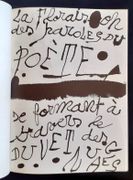 la floraison
des paroles du
POÈTE
se formant à
travers le
DUVET des
NUAGES